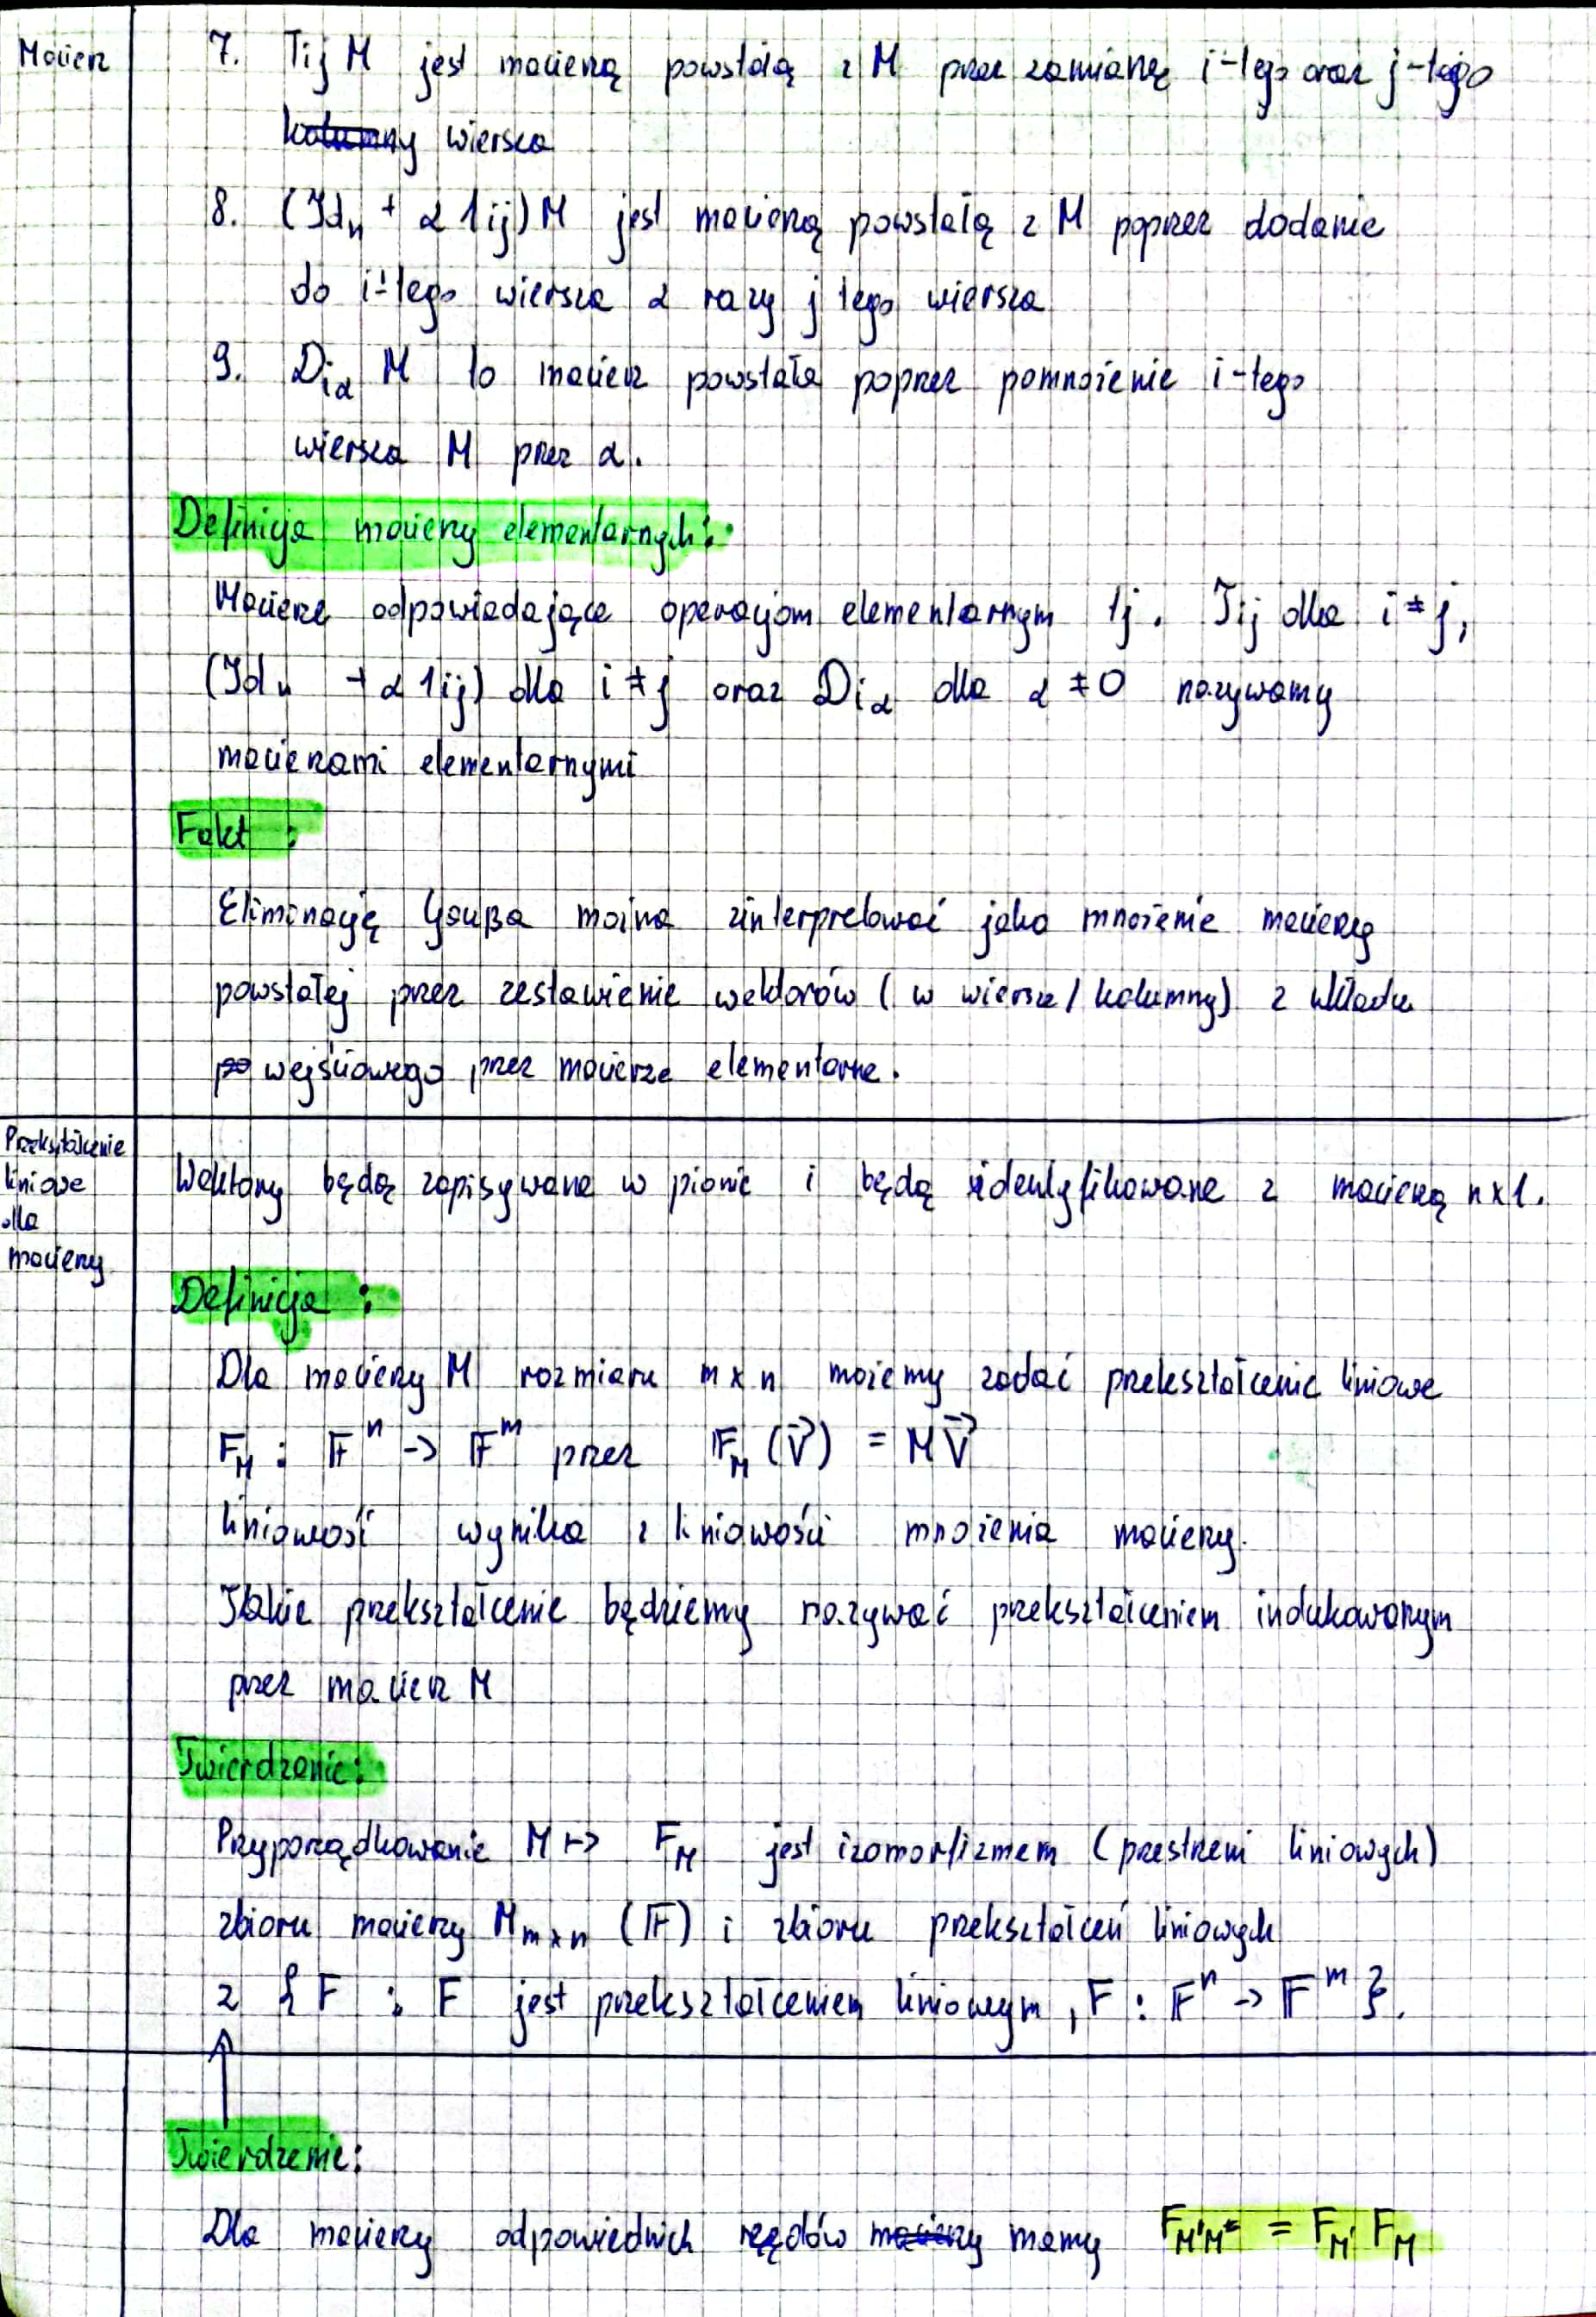 Macierz
7. Tij M jest macierzą powstałą z M przez zamianę i-tego oraz j-tego
kolumny wiersza
8. (Idn + α 1ij) M jest macierzą powstałą z M poprzez dodanie
do i-tego wiersza α razy j tego wiersza
9. Diα M to macierz powstała poprzez pomnożenie i-tego
wiersza M przez α.
Definicja macierzy elementarnych:
Macierze odpowiadające operacjom elementarnym tj. Tij dla i ≠ j,
(Idn + α 1ij) dla i ≠ j oraz Diα dla α ≠ 0 nazywamy
macierzami elementarnymi
Fakt :
Eliminację Gaußa można zinterpretować jako mnożenie macierzy
powstałej przez zestawienie wektorów (w wiersze / kolumny) z układu
po wejściowego przez macierze elementarne.
Przekształcenie
liniowe
dla
macierzy
Wektory będą zapisywane w pionie i będą identyfikowane z macierzą n x 1.
Definicja :
Dla macierzy M rozmiaru m x n możemy zadać przekształcenie liniowe
F_M : 𝔽^n -> 𝔽^m przez F_M (V⃗) = M V⃗
liniowość wynika z liniowości mnożenia macierzy.
Takie przekształcenie będziemy nazywać przekształceniem indukowanym
przez macierz M
Twierdzenie:
Przyporządkowanie M ↦ F_M jest izomorfizmem (przestrzeni liniowych)
zbioru macierzy M_m×n (𝔽) i zbioru przekształceń liniowych
z { F : F jest przekształceniem liniowym, F : 𝔽^n -> 𝔽^m }.
Twierdzenie:
Dla macierzy odpowiednich rzędów macierzy mamy F_M'M = F_M' F_M